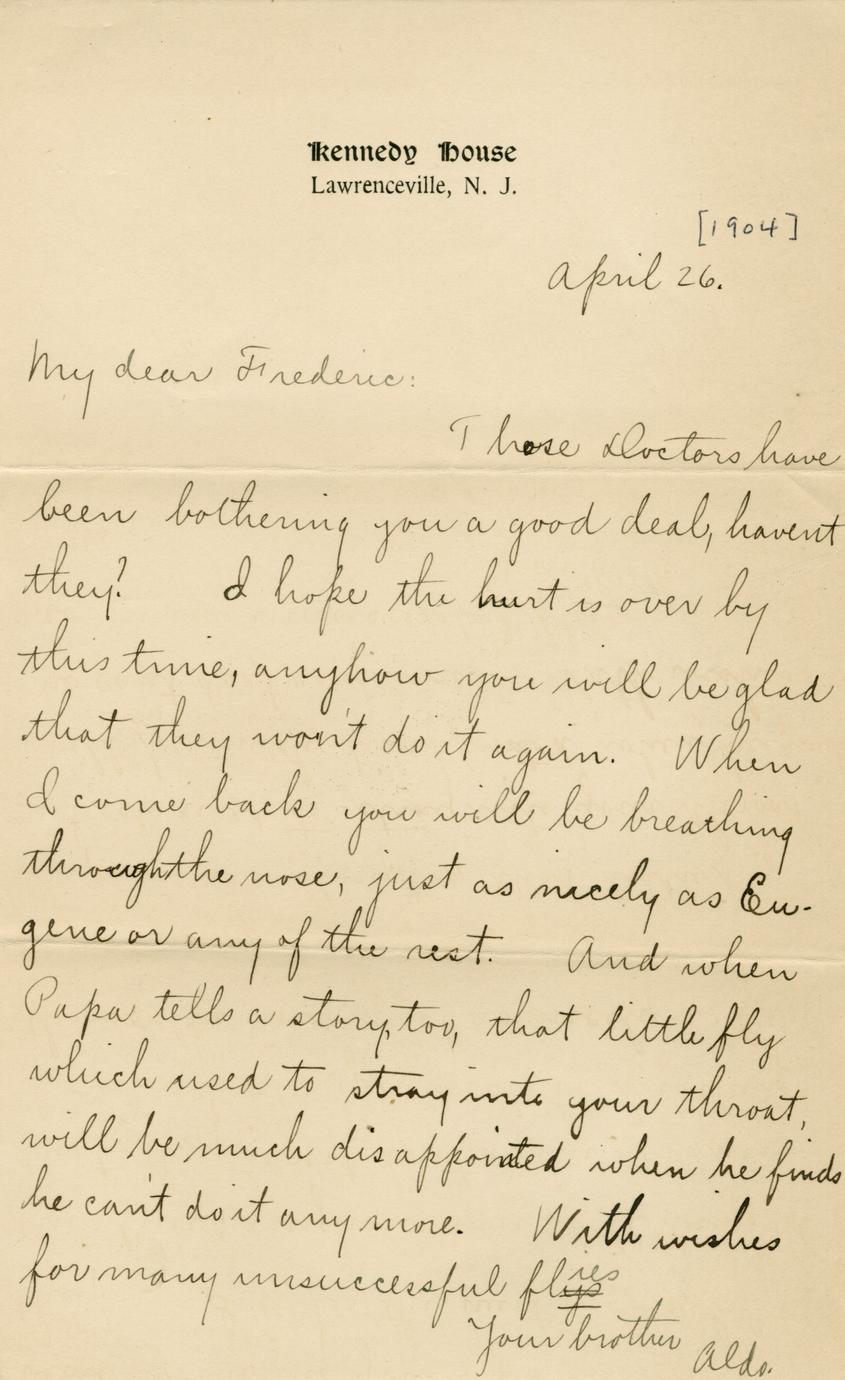 Kennedy House
Lawrenceville, N. J.
[1904]
April 26.
My dear Frederic:
Those Doctors have
been bothering you a good deal, havent
they? I hope the hurt is over by
this time, anyhow you will be glad
that they won't do it again. When
I come back you will be breathing
through the nose, just as nicely as Eu-
gene or any of the rest. And when
Papa tells a story, too, that little fly
which used to stray into your throat,
will be much disappointed when he finds
he can't do it any more. With wishes
for many unsuccessful flies
Your brother
Aldo.